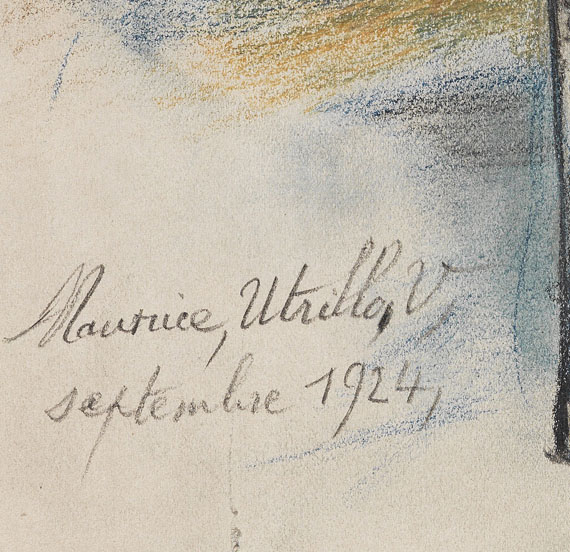 Maurice, Utrillo, V,
septembre 1924,